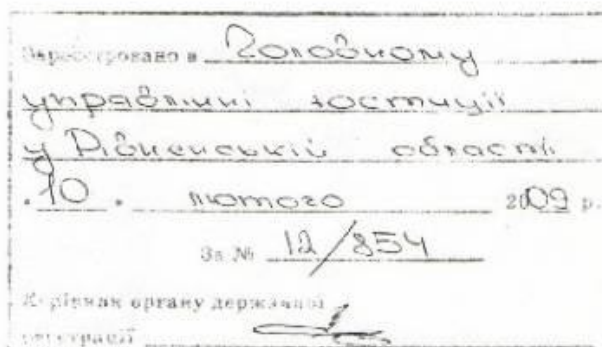 Зареєстровано в Головному
управлінні юстиції
у Рівненській області
"10" лютого 2009 р.
За № 12/854
Керівник органу державної
реєстрації